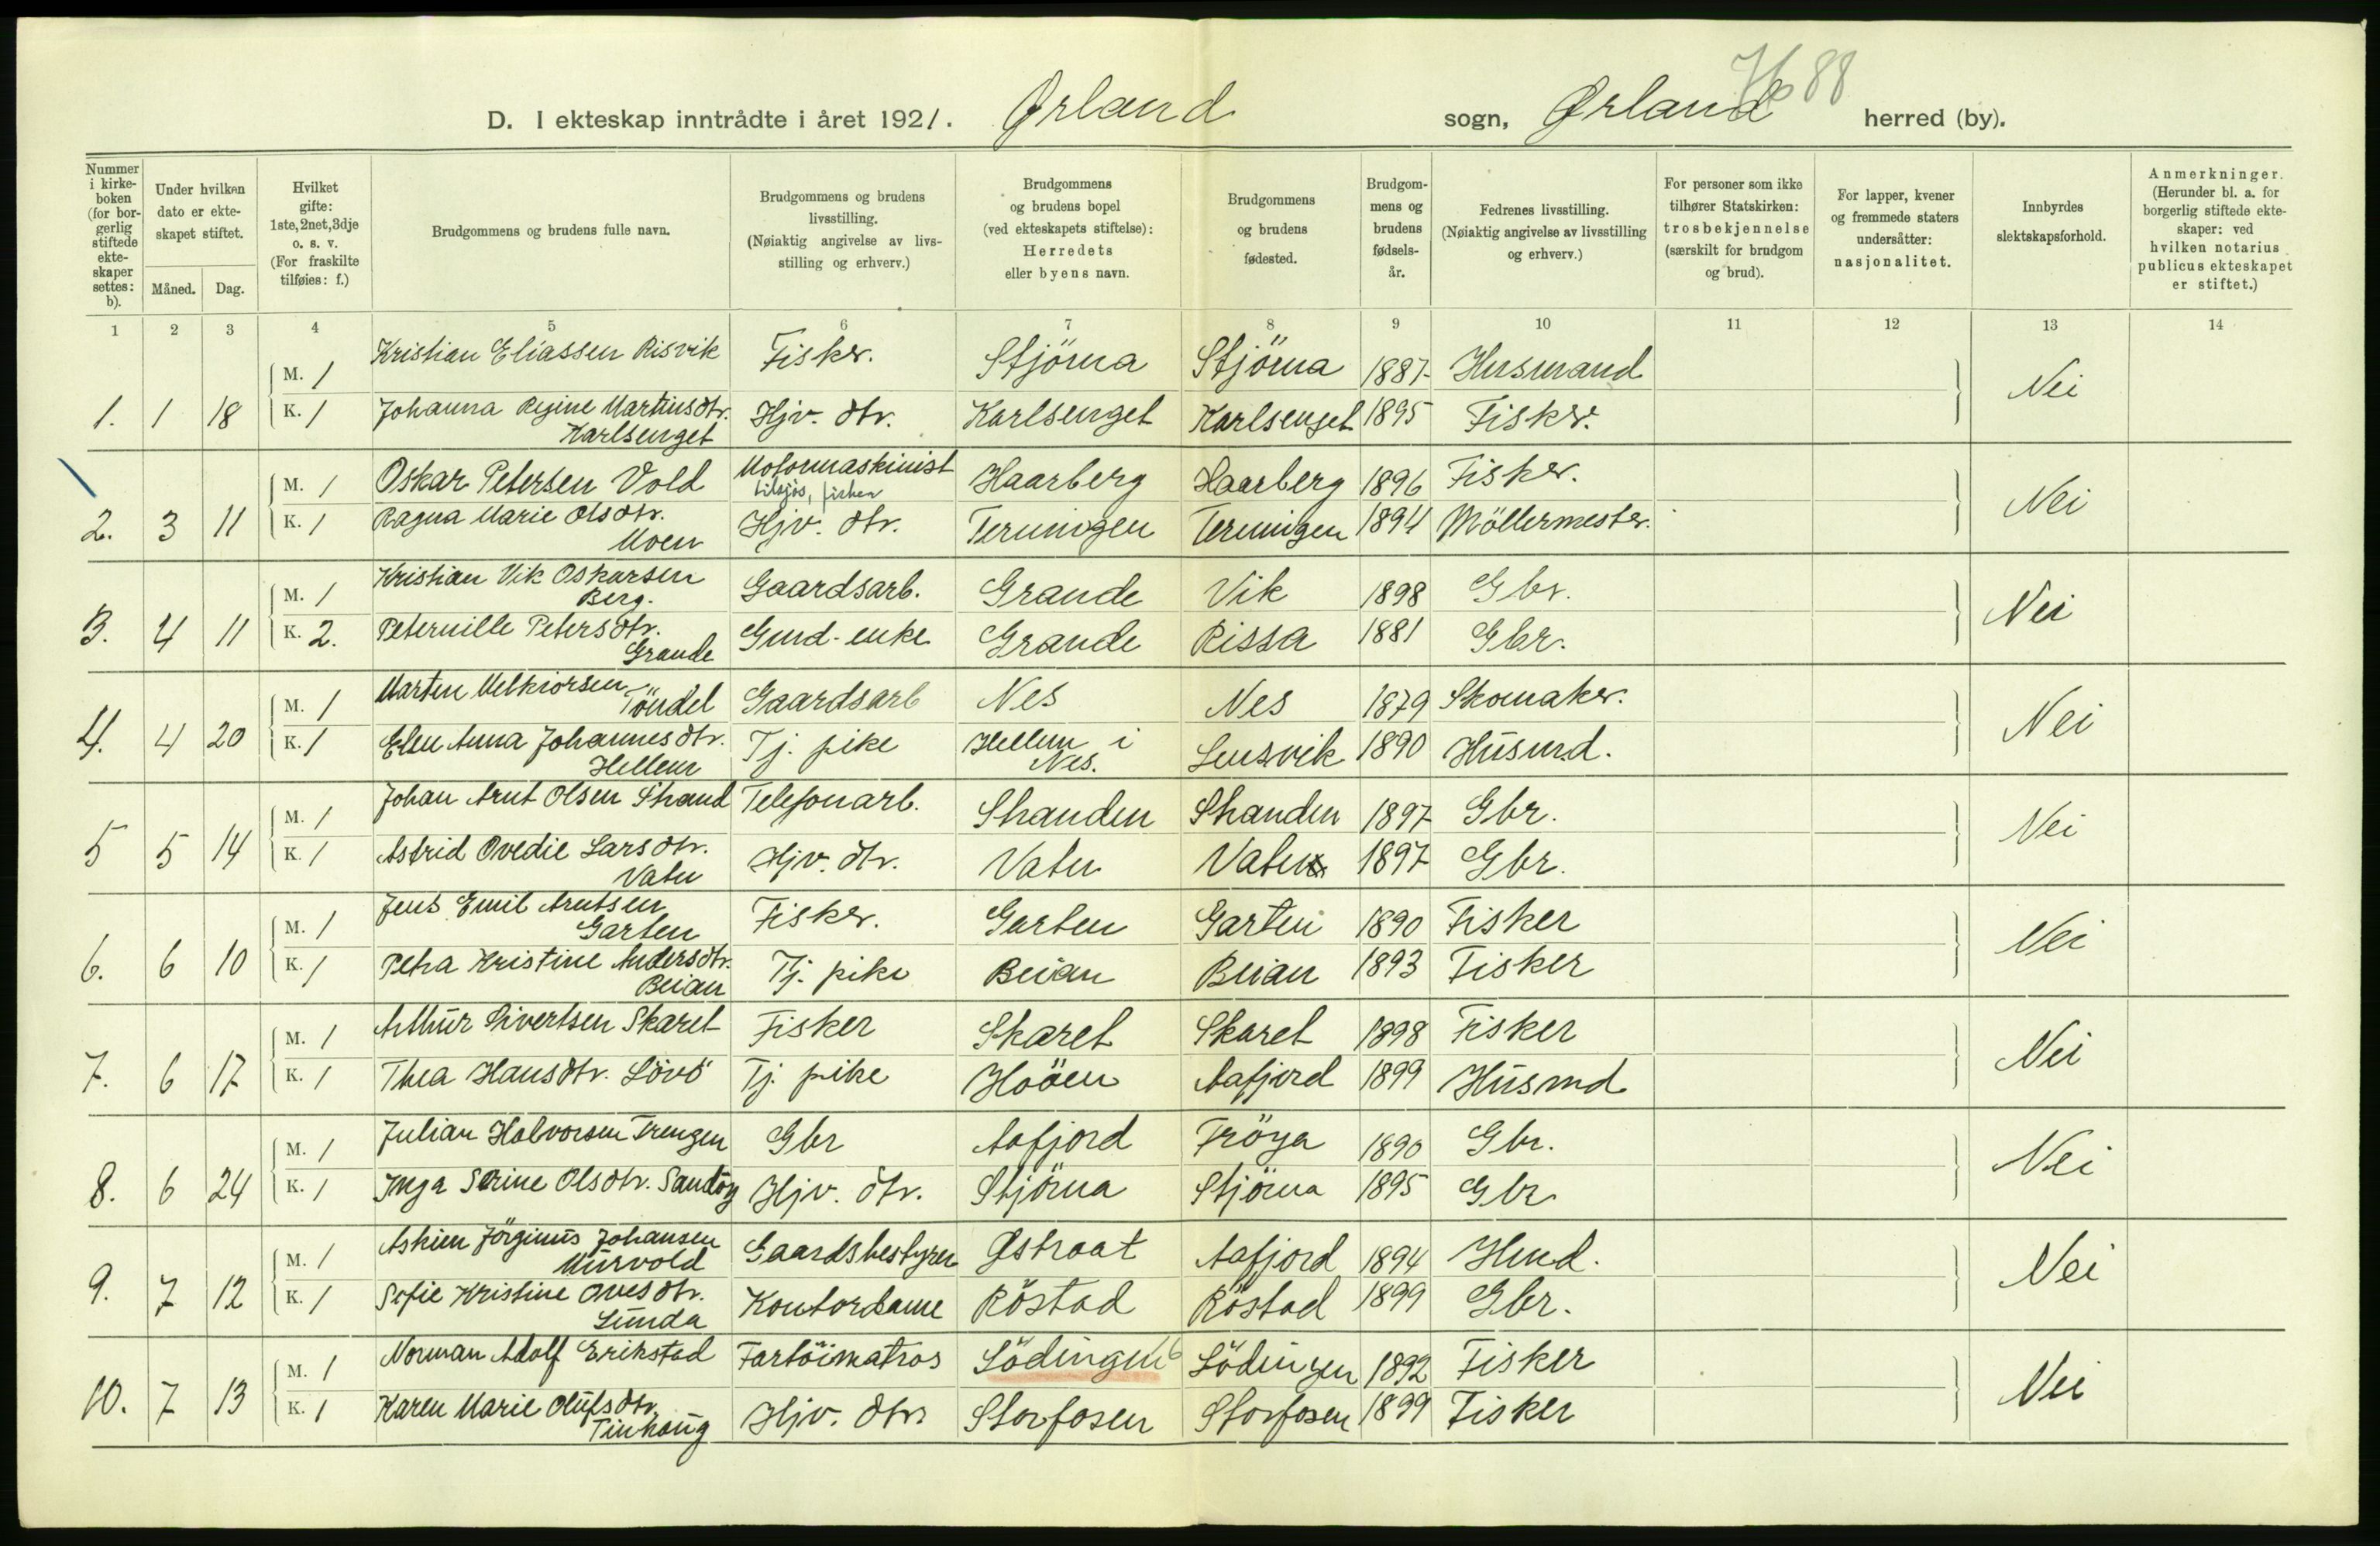 H 88
D. I ekteskap inntrådte i året 1921. Ørland sogn, Ørland herred (by).
Nummer i kirke-boken (for bor-gerlig stiftede ekte-skaper settes: b).
Under hvilken dato er ekte-skapet stiftet.
Måned. Dag.
Hvilket gifte: 1ste, 2net, 3dje o. s. v. (For fraskilte tilføies: f.)
Brudgommens og brudens fulle navn.
Brudgommens og brudens livsstilling. (Nøiaktig angivelse av livs-stilling og erhverv.)
Brudgommens og brudens bopel (ved ekteskapets stiftelse): Herredets eller byens navn.
Brudgommens og brudens fødested.
Brudgom-mens og brudens fødsels-år.
Fedrenes livsstilling. (Nøiaktig angivelse av livsstilling og erhverv.)
For personer som ikke tilhører Statskirken: trosbekjennelse (særskilt for brudgom og brud).
For lapper, kvener og fremmede staters undersåtter: nasjonalitet.
Innbyrdes slektskapsforhold.
Anmerkninger. (Herunder bl. a. for borgerlig stiftede ekte-skaper: ved hvilken notarius publicus ekteskapet er stiftet.)
1 2 3 4 5 6 7 8 9 10 11 12 13 14
M. 1 Kristian Eliassen Risvik Fisker. Stjörna Stjörna 1887 Husmand Nei
1. 1 18 K. 1 Johanna Regine Martinsdtr. Hjv. dtr. Karlsenget Karlsenget 1895 Fisker.
Karlsenget
M. 1 Oskar Petersen Vold Motormaskinist Haarberg Haarberg 1896 Fisker. Nei
tilsjøs, fisker
2. 3 11 K. 1 Ragna Marie Olsdtr. Hjv. dtr. Terningen Terningen 1894 Möllermester.
Moen
Kristian Vik Oskarsen
M. 1 Berg. Gaardsarb. Grande Vik 1898 Gbr. Nei
3. 4 11 K. 2. Peternille Petersdtr. Gmd-enke Grande Rissa 1881 Gbr.
Grande
Marten Melkiorsen
M. 1 Töndel Gaardsarb Nes Nes 1879 Skomaker. Nei
4. 4 20 K. 1 Elen Anna Johannesdtr. Tj. pike Hellem i Lensvik 1890 Husmd.
Hellem Nes.
M. 1 Johan Arnt Olsen Strand Telefonarb. Stranden Stranden 1897 Gbr. Nei
5 5 14 K. 1 Astrid Ovedie Larsdtr. Hjv. dtr. Vatn Vatn 1897 Gbr.
Vatn
Jens Emil Arntsen
M. 1 Garten Fisker. Garten Garten 1890 Fisker Nei
6. 6 10 K. 1 Petra Kristine Andersdtr. Tj. pike Beian Beian 1893 Fisker
Beian
M. 1 Arthur Sivertsen Skaret Fisker Skaret Skaret 1898 Fisker Nei
7. 6 17 K. 1 Thea Hansdtr. Lövö Tj. pike Hoöen Aafjord 1899 Husmd
M. 1 Julian Halvorsen Trengen Gbr Aafjord Fröya 1890 Gbr. Nei
8. 6 24 K. 1 Inga Serine Olsdtr. Sandöy Hjv. dtr. Stjörna Stjörna 1895 Gbr
Askim Jörginus Johansen
M. 1 Murvold Gaardsbestyrer Østraat Aafjord 1894 Hmd. Nei
9. 7 12 K. 1 Sofie Kristine Ovesdtr. Kontordame Röstad Röstad 1899 Gbr.
Lunda
M. 1 Norman Adolf Erikstad Fartöimatros Lödingen 16 Lödingen 1892 Fisker Nei
10. 7 13 K. 1 Karen Marie Olufsdtr. Hjv. dtr. Storfosen Storfosen 1899 Fisker
Tinhaug